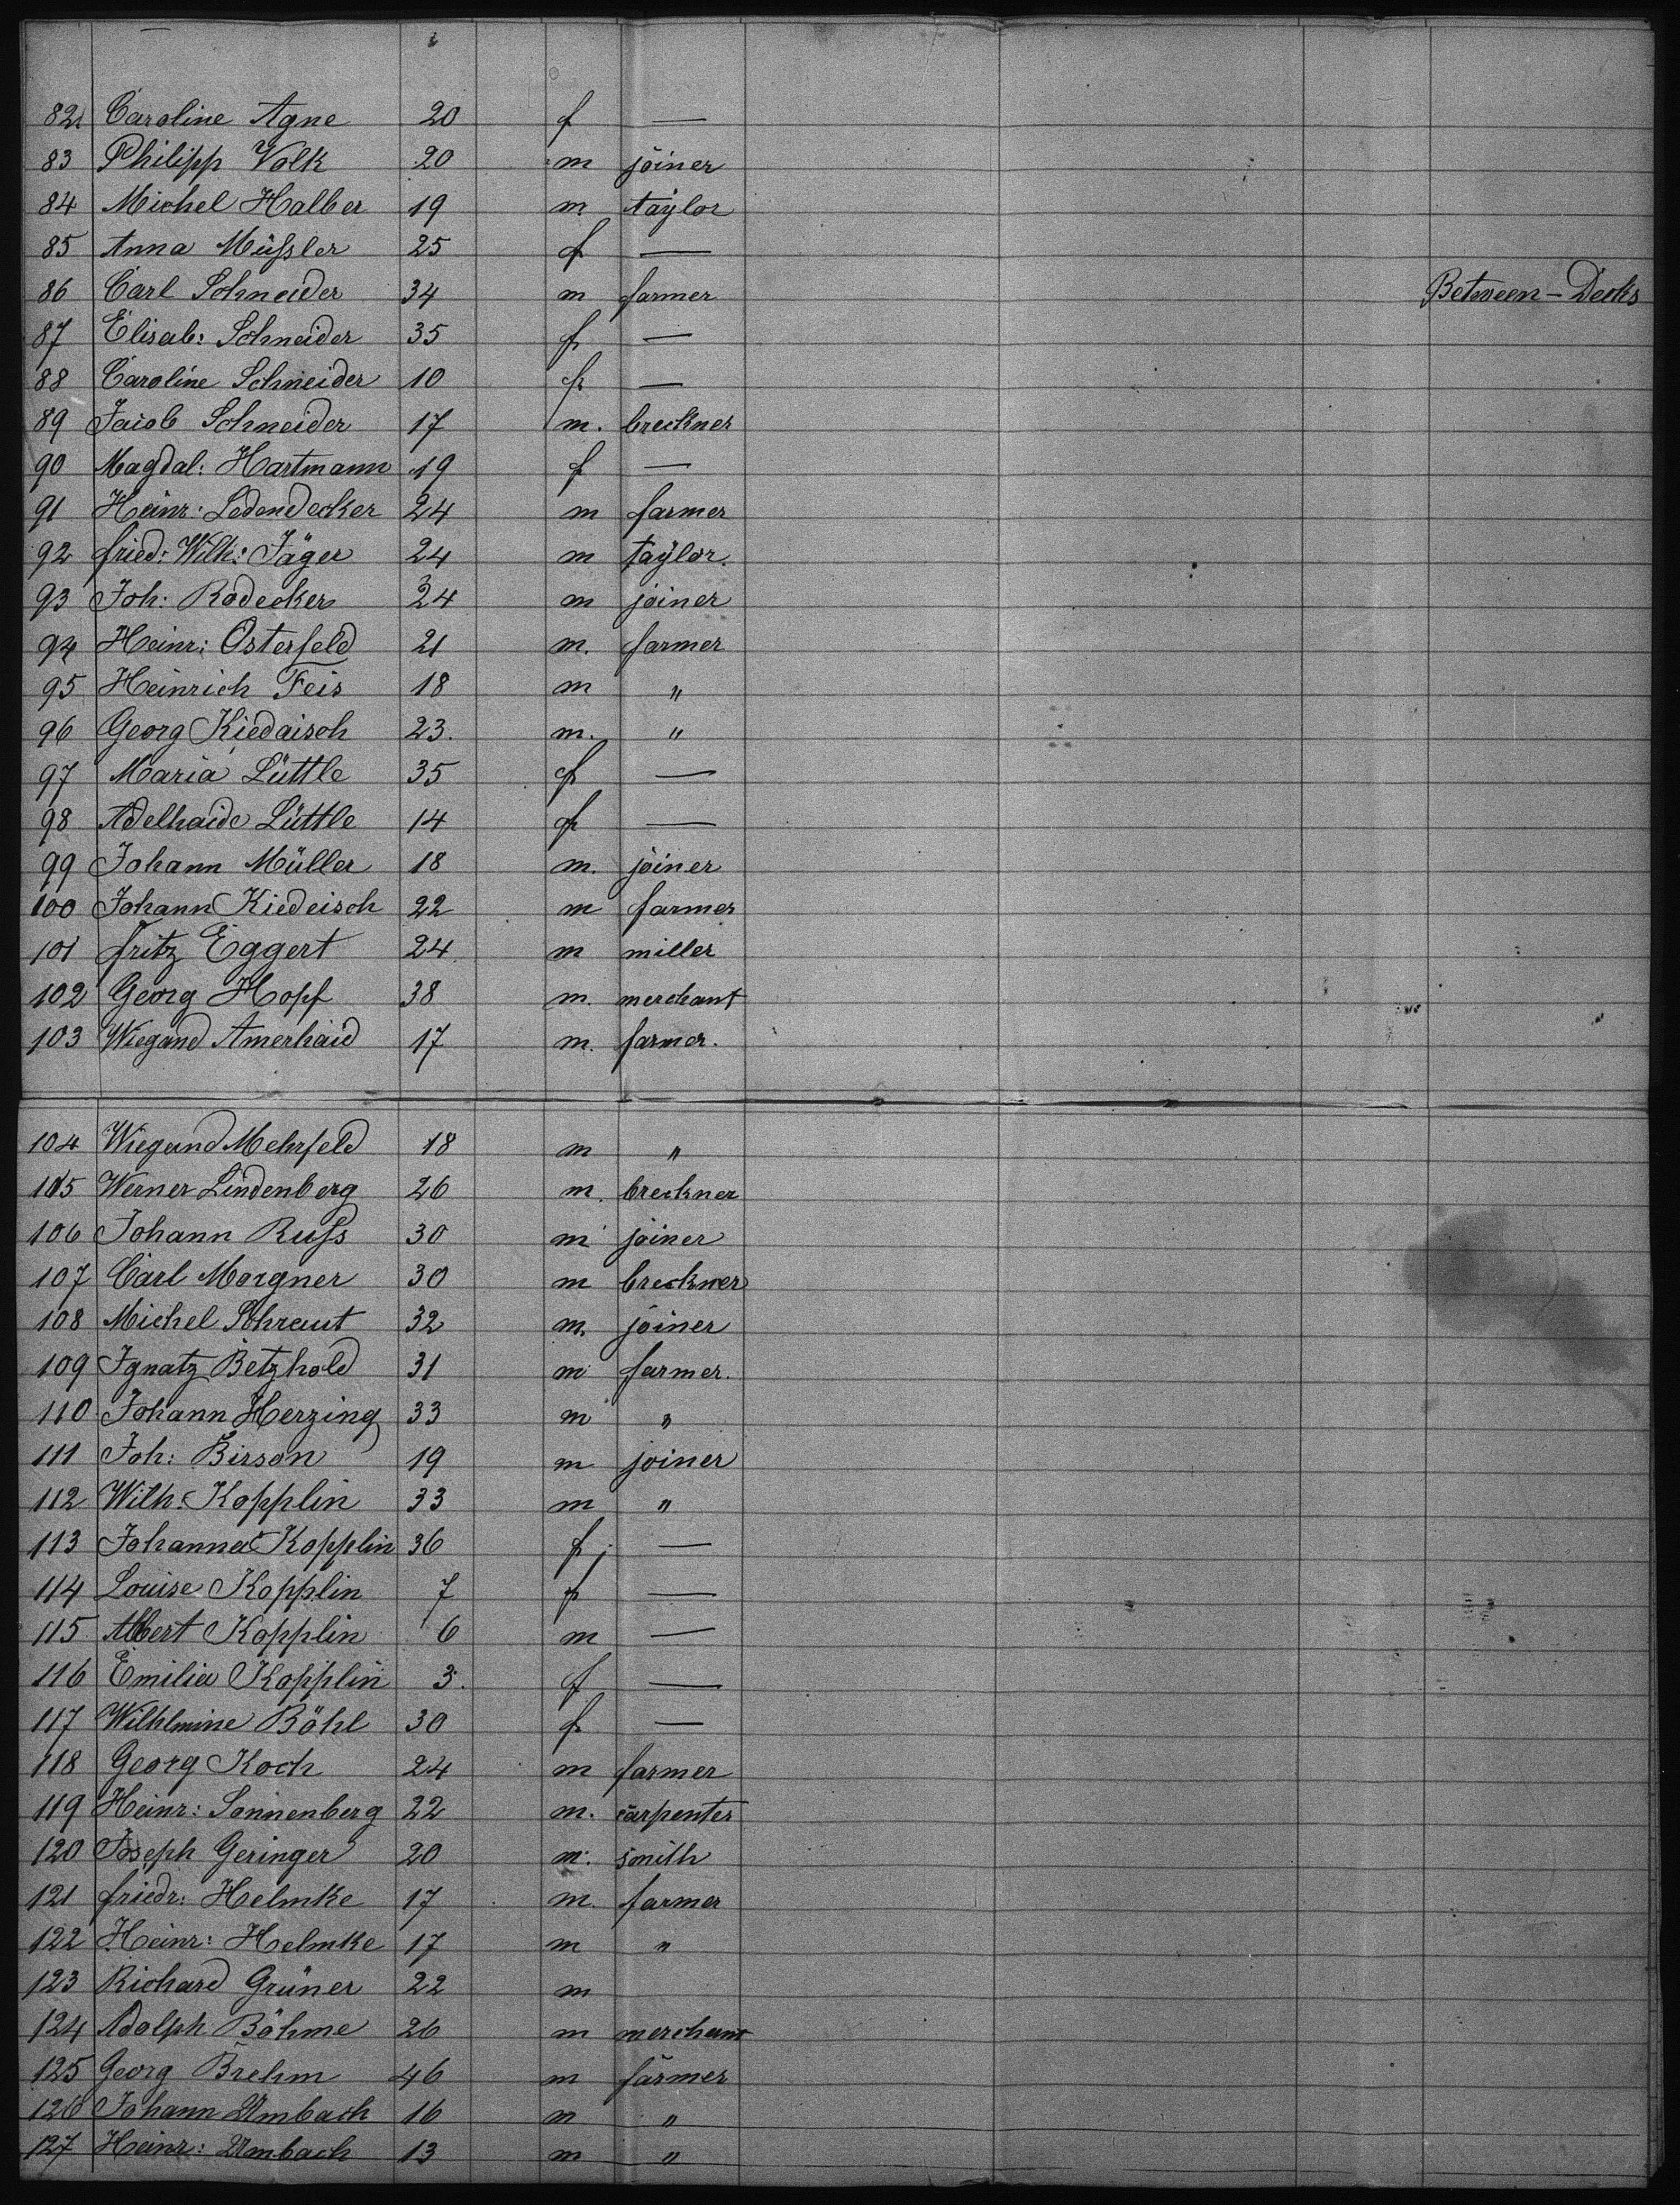 82 Caroline Agne 20 f —
83 Philipp Volk 20 m joiner
84 Michel Halber 19 m taylor
85 Anna Müssler 25 f —
86 Carl Schneider 34 m farmer Between-Decks
87 Elisab: Schneider 35 f —
88 Caroline Schneider 10 f —
89 Jacob Schneider 17 m. breckner
90 Magdal: Hartmann 19 f —
91 Heinr: Ledendecker 24 m farmer
92 Fried: Wilh: Jäger 24 m taylor.
93 Joh: Radecker 24 m joiner
94 Heinr: Osterfeld 21 m. farmer
95 Heinrich Feis 18 m "
96 Georg Kiedaisch 23. m. "
97 Maria Lüttle 35 f —
98 Adelhaide Lüttle 14 f —
99 Johann Müller 18 m. joiner
100 Johann Kiedeisch 22 m farmer
101 Fritz Eggert 24 m miller
102 Georg Hopf 38 m. merchant
103 Wiegand Amerhaid 17 m. farmer.
104 Wiegand Mehrfeld 18 m "
105 Werner Lindenberg 26 m. breckner
106 Johann Russ 30 m joiner
107 Carl Morgner 30 m breckner
108 Michel Schraut 32 m. joiner
109 Ignatz Betzhold 31 m farmer.
110 Johann Herzing 33 m "
111 Joh: Birson 19 m joiner
112 Wilh: Kopplin 33 m "
113 Johanna Kopplin 36 f —
114 Louise Kopplin 7 f —
115 Albert Kopplin 6 m —
116 Emilia Kopplin 3. f —
117 Wilhlmine Böhl 30 f —
118 Georg Koch 24 m farmer
119 Heinr: Sonnenberg 22 m. carpenter
120 Joseph Geringer 20 m. smith
121 Friedr: Helmke 17 m. farmer
122 Heinr: Helmke 17 m "
123 Richard Grüner 22 m
124 Adolph Böhme 26 m merchant
125 Georg Brehm 46 m farmer
126 Johann Umbach 16 m "
127 Heinr: Umbach 13 m "